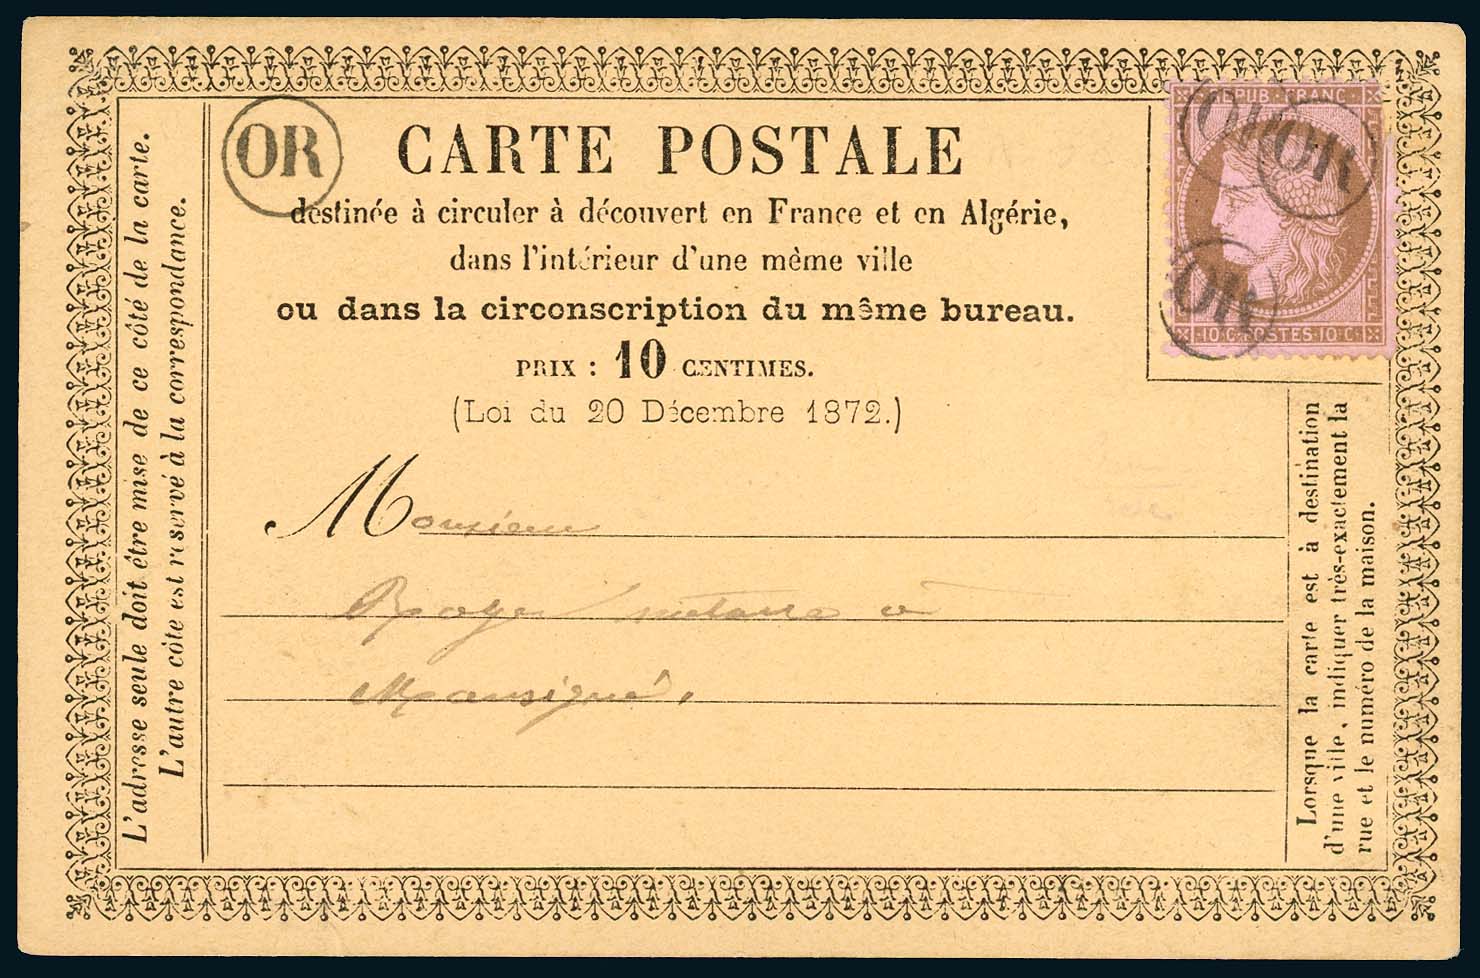 OR
CARTE POSTALE
destinée à circuler à découvert en France et en Algérie,
dans l'intérieur d'une même ville
ou dans la circonscription du même bureau.
PRIX : 10 CENTIMES.
(Loi du 20 Décembre 1872.)
REPUB · FRANC
OR
OR
OR
10 · C. POSTES · 10 · C.
L'adresse seule doit être mise de ce côté de la carte.
L'autre côte est reservé à la correspondance.
Monsieur
Royer notaire à
Mansigné.
Lorsque la carte est à destination
d'une ville, indiquer très-exactement la
rue et le numéro de la maison.